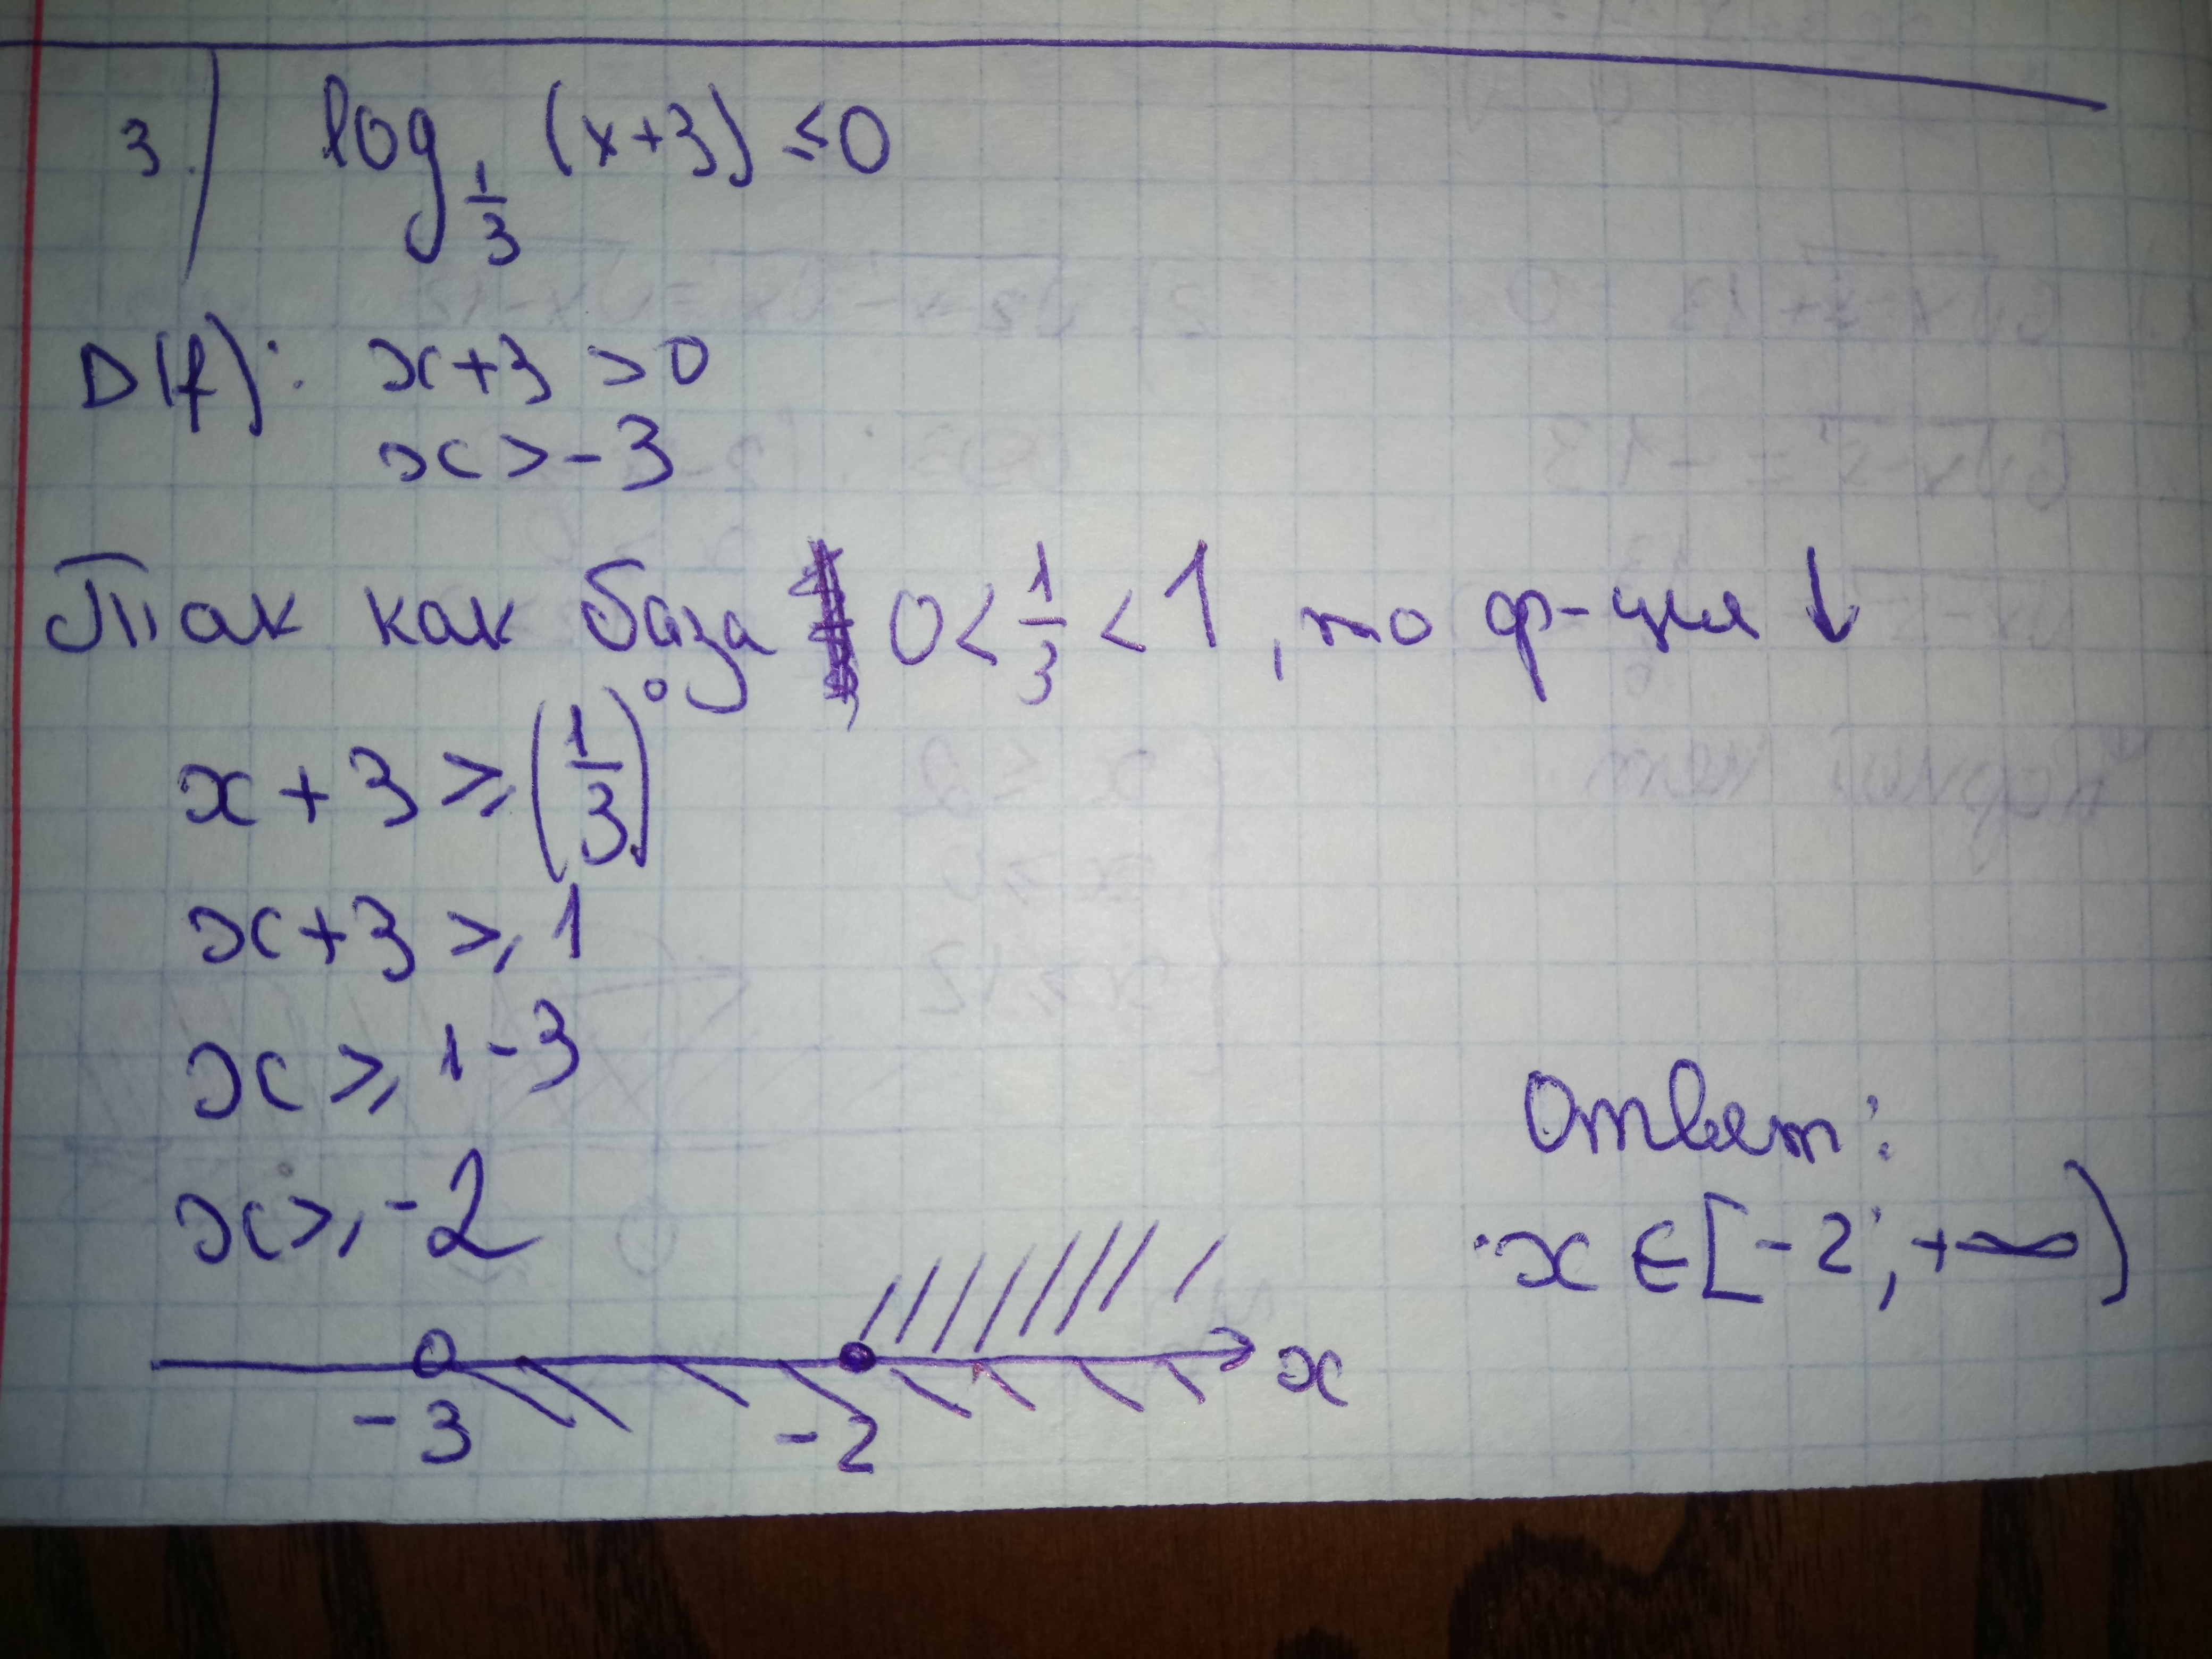 3. log_{1/3} (x+3) ≤ 0
D(f): x+3 > 0
x > -3
Так как база 0 < 1/3 < 1, то ф-ция ↓
x + 3 ≥ (1/3)^0
x + 3 ≥ 1
x ≥ 1 - 3
x ≥ -2
Ответ:
x ∈ [-2; +∞)
-3 -2 x